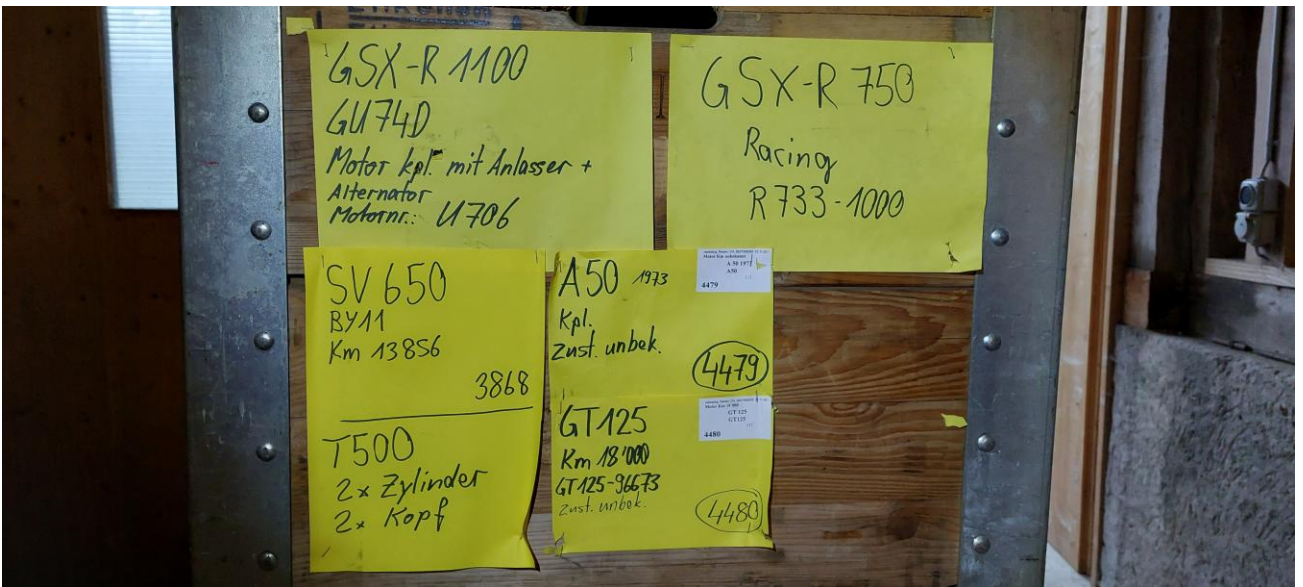 GSX-R 1100
GU74D
Motor kpl. mit Anlasser +
Alternator
Motornr.: U706
GSX-R 750
Racing
R733-1000
SV 650
BY11
Km 13856
3868
T500
2x Zylinder
2x Kopf
A50 1973
Kpl.
Zust. unbek.
4479
Motor Km unbekannt
A 50 1973
A50
4479
GT125
Km 18'000
GT125-96673
Zust. unbek.
4480
GT 125
GT125
4480